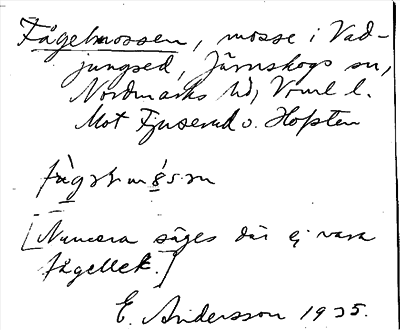 Fågelmossen, mosse i Vad-
jungsed, Järnskogs sn,
Nordmarks hd, Vrml l.
Mot Fjuserud o. Hopsten
[Numera säges där ej vara
fågellek.]
E. Andersson 1935.